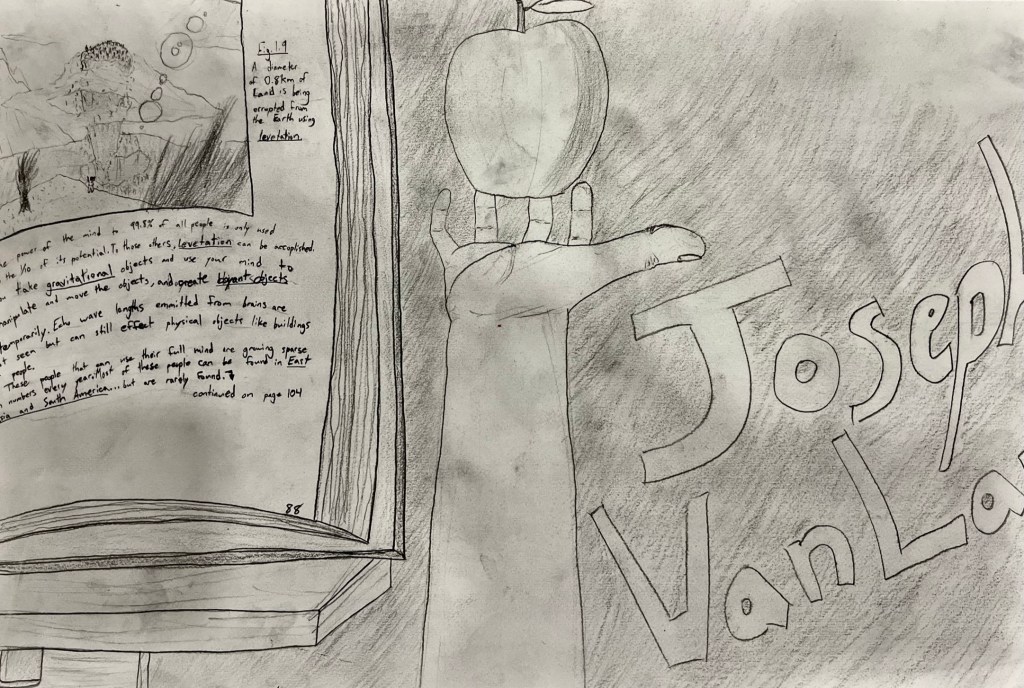 Fig 1.9
A diameter
of 0.8km of
Eand is being
orrupted from
the Earth using
levetation.
power of the mind to 99.8% of all people is only used
the 1/10 of its potential. To those others, levetation can be accoplished.
take gravitational objects and use your mind to
manipulate and move the objects, and create boyant objects
temporarily. Echo wave lengths emmitted from brains are
seen but can still effect physical objects like buildings
people.
These people that can use their full mind are growing sparse
numbers every year. Most of these people can be found in East
and South America...but are rarely found.
continued on page 104
88
Joseph
Van La